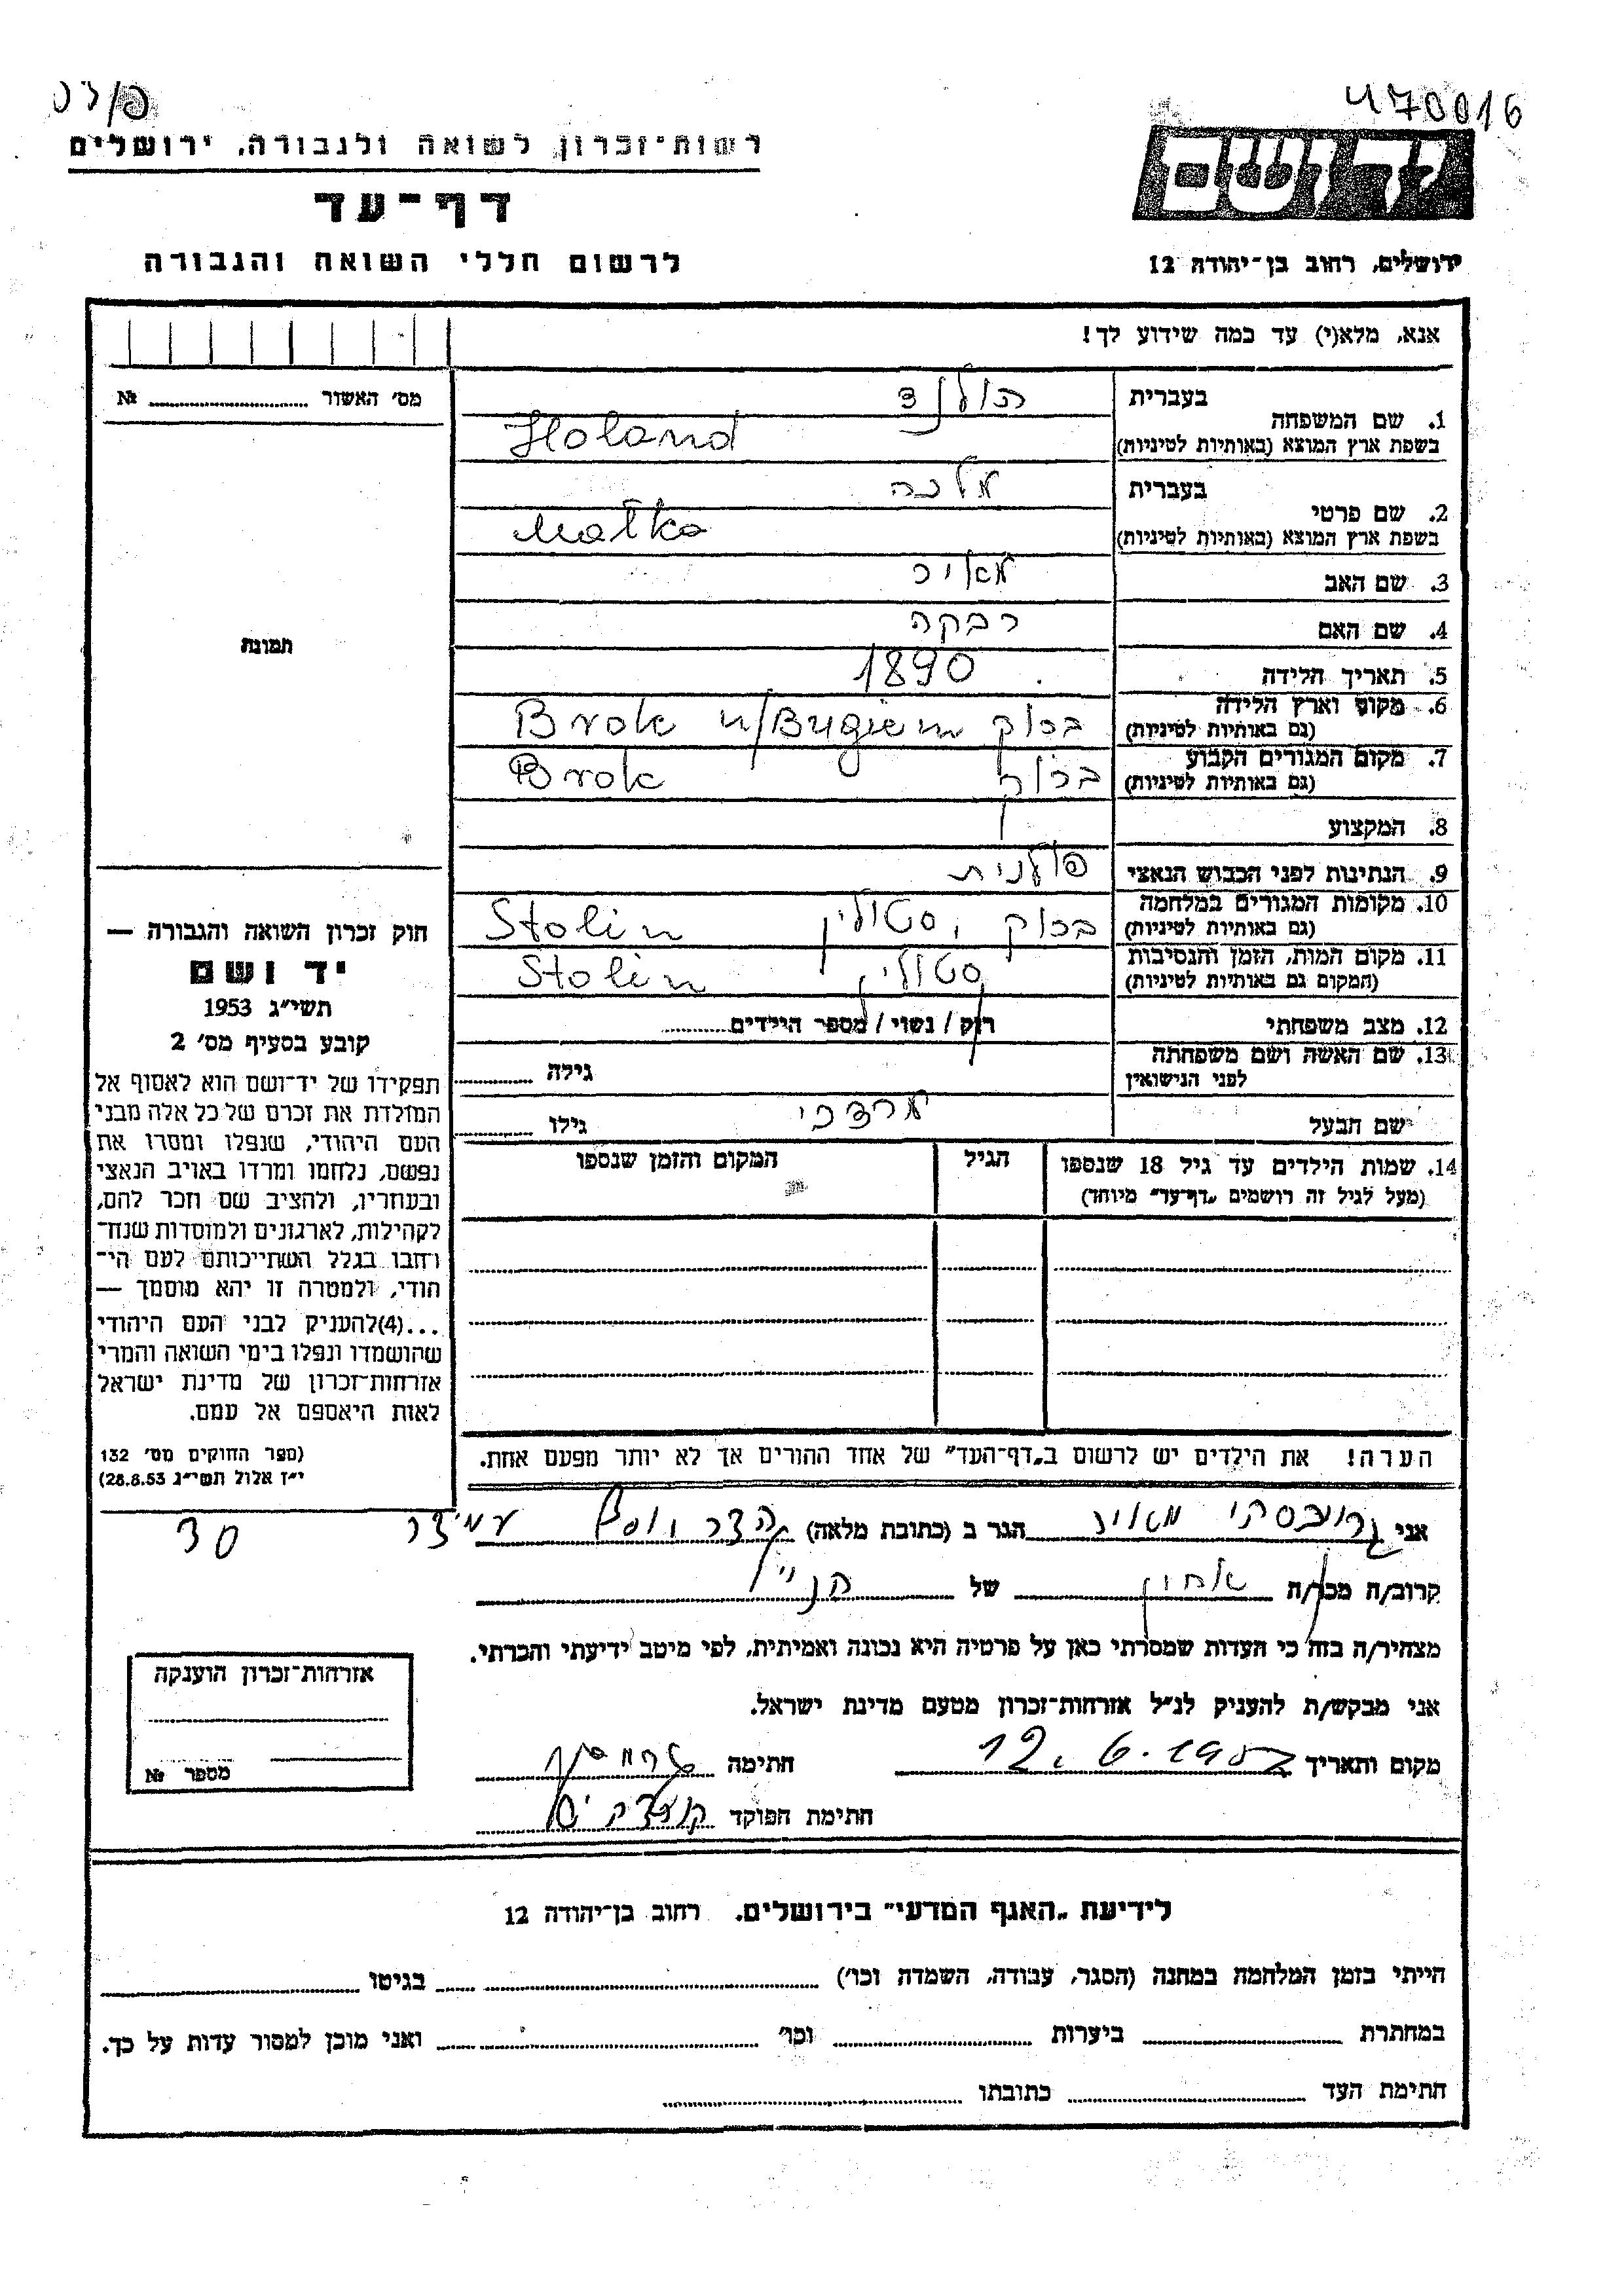 470016
רשות-זכרון לשואה ולגבורה, ירושלים
דף-עד
לרשום חללי השואה והגבורה
יד ושם
ירושלים, רחוב בן-יהודה 12
אנא, מלא(י) עד כמה שידוע לך!
מס׳ האשור № 
1. שם המשפחה
בעברית הולנד
בשפת ארץ המוצא (באותיות לטיניות) Holand
2. שם פרטי
בעברית מלכה
בשפת ארץ המוצא (באותיות לטיניות) Małka
3. שם האב מאיר
4. שם האם רבקה
5. תאריך הלידה 1890
6. מקום וארץ הלידה ברוק Brok n/Bugiem
(גם באותיות לטיניות)
7. מקום המגורים הקבוע ברוק Brok
(גם באותיות לטיניות)
8. המקצוע
9. הנתינות לפני הכבוש הנאצי פולנית
10. מקומות המגורים במלחמה ברוק, סטולין Stolin
(גם באותיות לטיניות)
11. מקום המות, הזמן והנסיבות סטולין Stolin
(המקום גם באותיות לטיניות)
12. מצב משפחתי רוק / נשוי / מספר הילדים
13. שם האשה ושם משפחתה
לפני הנישואין גילה
שם הבעל מרדכי גילו
14. שמות הילדים עד גיל 18 שנספו
(מעל לגיל זה רושמים „דף-עד״ מיוחד)
הגיל
המקום והזמן שנספו
הערה! את הילדים יש לרשום ב„דף-העד״ של אחד ההורים אך לא יותר מפעם אחת.
תמונה
חוק זכרון השואה והגבורה —
יד ושם
תשי״ג 1953
קובע בסעיף מס׳ 2
תפקידו של יד-ושם הוא לאסוף אל
המולדת את זכרם של כל אלה מבני
העם היהודי, שנפלו ומסרו את
נפשם, נלחמו ומרדו באויב הנאצי
ובעוזריו, ולהציב שם וזכר להם,
לקהילות, לארגונים ולמוסדות שנח-
רחבו בגלל השתייכותם לעם הי-
הודי, ולמטרה זו יהא מוסמך —
...(4)להעניק לבני העם היהודי
שהושמדו ונפלו בימי השואה והמרי
אזרחות-זכרון של מדינת ישראל
לאות היאספם אל עמם.
(ספר החוקים מס׳ 132
י״ז אלול תשי״ג 28.8.53)
אני מאיר הגר ב (כתובת מלאה) עמידר 30
קרוב/ה מכר/ה אחין של הנ״ל
מצהיר/ה בזה כי העדות שמסרתי כאן על פרטיה היא נכונה ואמיתית, לפי מיטב ידיעתי והכרתי.
אני מבקש/ת להעניק לנ״ל אזרחות-זכרון מטעם מדינת ישראל.
מקום ותאריך 12.6.1957 חתימה
חתימת הפוקד
אזרחות-זכרון הוענקה
מספר №
לידיעת „האגף המדעי״ בירושלים. רחוב בן-יהודה 12
הייתי בזמן המלחמה במחנה (הסגר, עבודה, השמדה וכו׳) בגיטו
במחתרת ביערות וכו׳ ואני מוכן למסור עדות על כך.
חתימת העד כתובתו